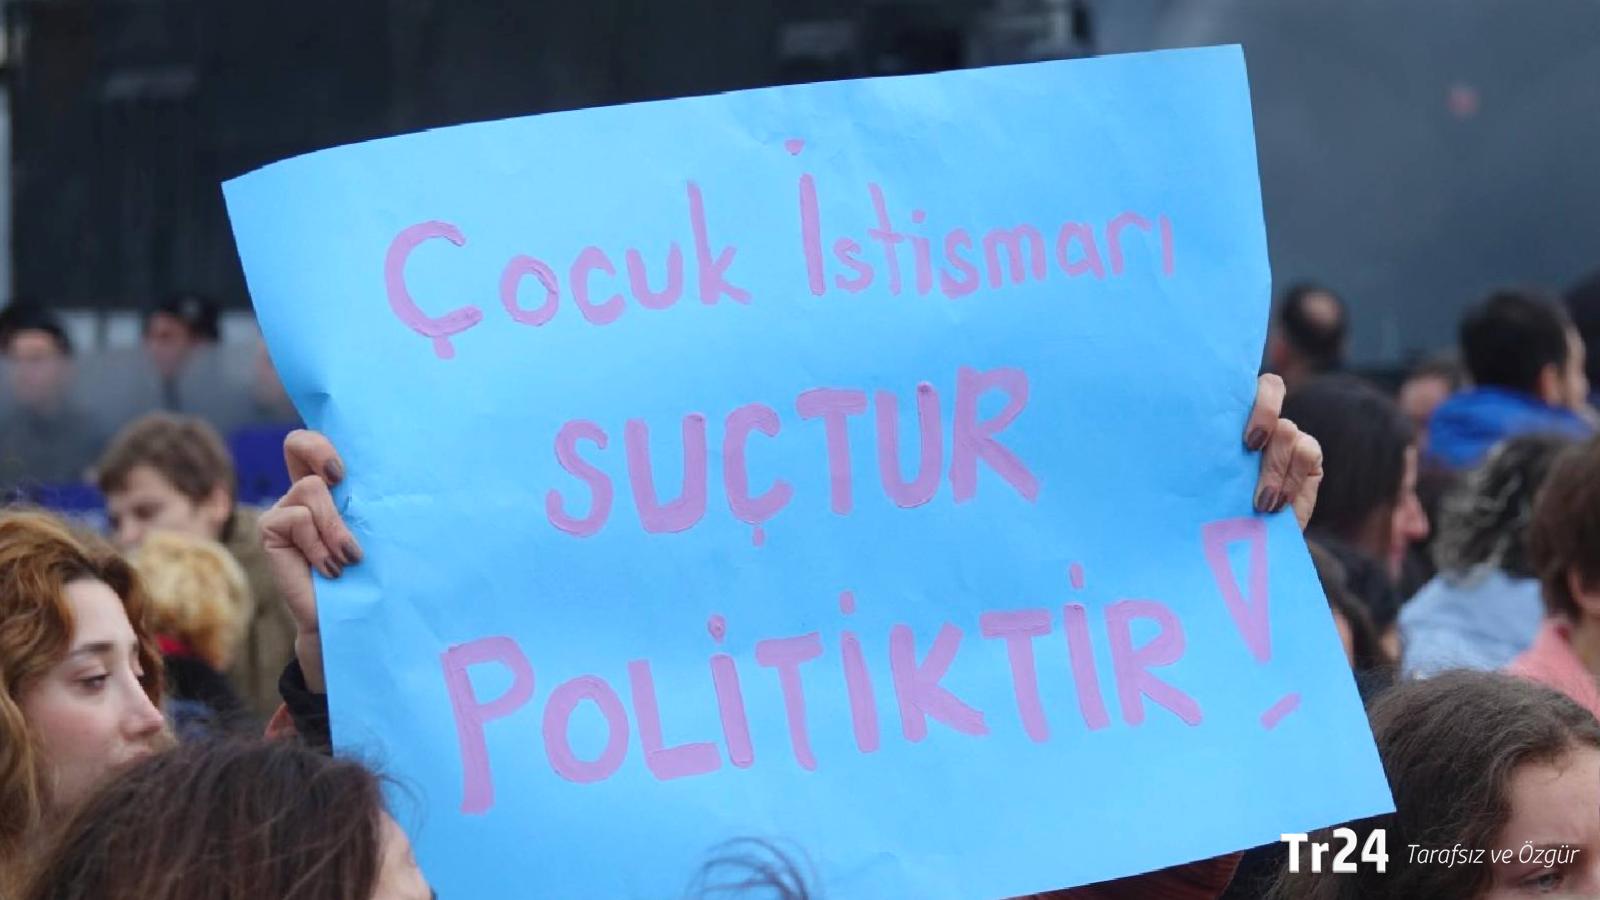 Çocuk İstismarı
SUÇTUR
POLİTİKTİR!
Tr24 Tarafsız ve Özgür